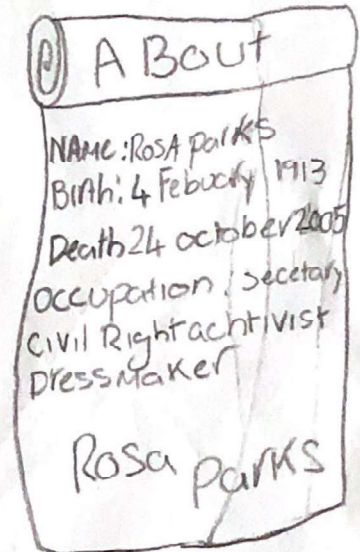 ABout
NAMe: RosA parks
Birth: 4 Febuary 1913
Death 24 october 2005
occupation: secetary
civil Right achtivist
DressMaker
Rosa parks